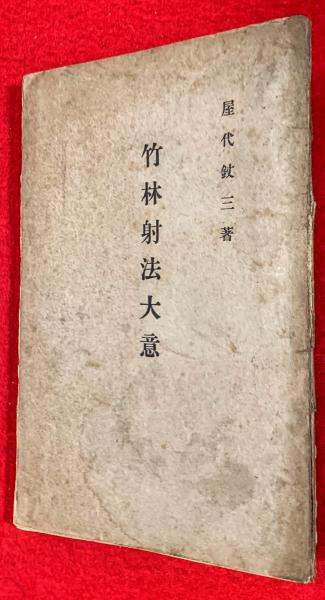 屋代釹三著
竹林射法大意